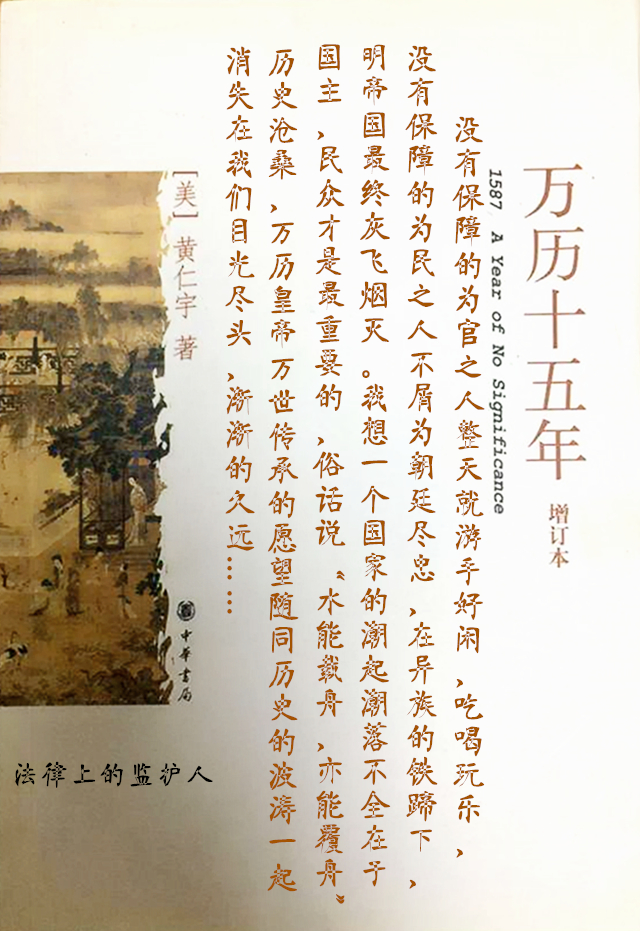 万历十五年
增订本
1587 A Year of No Significance
没有保障的为官之人整天就游手好闲,吃喝玩乐,
没有保障的为民之人不屑为朝廷尽忠,在异族的铁蹄下,
明帝国最终灰飞烟灭。我想一个国家的潮起潮落不全在于
国主,民众才是最重要的,俗话说“水能载舟,亦能覆舟”
历史沧桑,万历皇帝万世传承的愿望随同历史的波涛一起
消失在我们目光尽头,渐渐的久远……
[美] 黄仁宇 著
中华书局
法律上的监护人